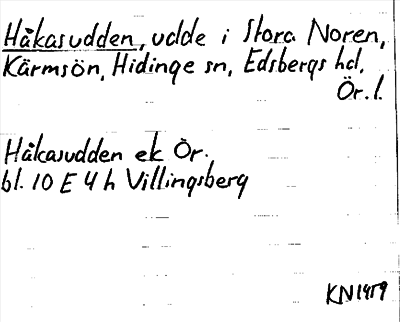 Håkasudden, udde i Stora Noren,
Kärmsön, Hidinge sn, Edsbergs hd,
Ör. l.
Håkasudden ek Ör.
bl. 10 E 4 h Villingsberg
KN 1959